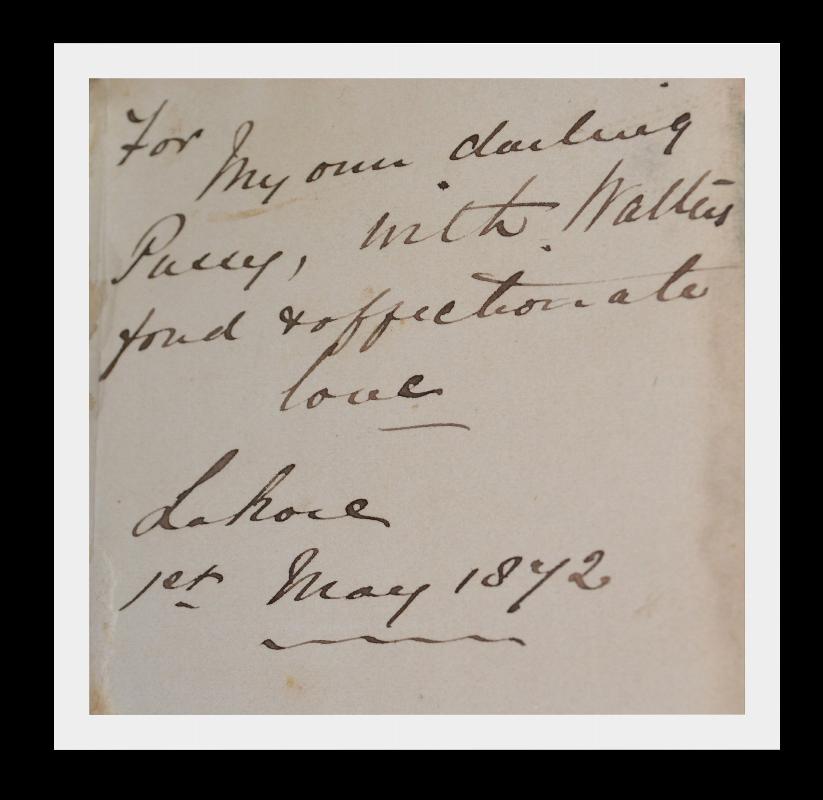 For
My own darling
Pussy, with Walter's
fond & affectionate
love
Lahore
1st May 1872